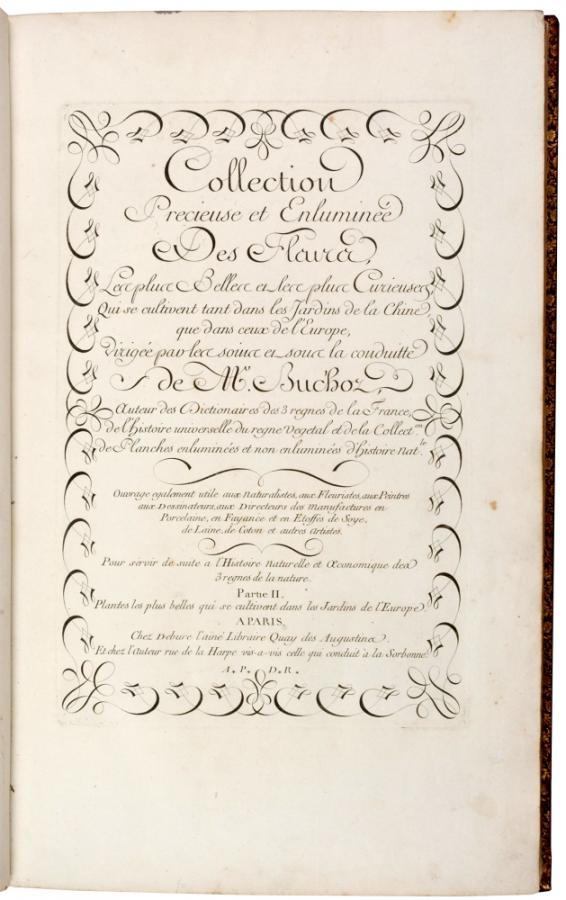 Collection
Precieuse et Enluminée
Des Fleurs,
Les plus Belles et les plus Curieuses,
Qui se cultivent tant dans les Jardins de la Chine,
que dans ceux de l'Europe,
Dirigée par les soins et sous la conduitte
de Mr. Buc'hoz,
Auteur des Dictionaires des 3 regnes de la France,
de l'histoire universelle du regne Vegetal et de la Collect.on
de Planches enluminées et non enluminées d'histoire Nat.le
Ouvrage egalement utile aux Naturalistes, aux Fleuristes, aux Peintres
aux Dessinateurs, aux Directeurs des Manufactures en
Porcelaine, en Fayance et en Etoffes de Soye,
de Laine, de Coton et autres Artistes.
Pour servir de suite a l'Histoire Naturelle et Œconomique des
3 regnes de la nature.
Partie II.
Plantes les plus belles qui se cultivent dans les Jardins de l'Europe
A PARIS,
Chez Debure l'ainé Libraire Quay des Augustins
Et chez l'Auteur rue de la Harpe vis-a-vis celle qui conduit à la Sorbonne.
A. P. D. R.